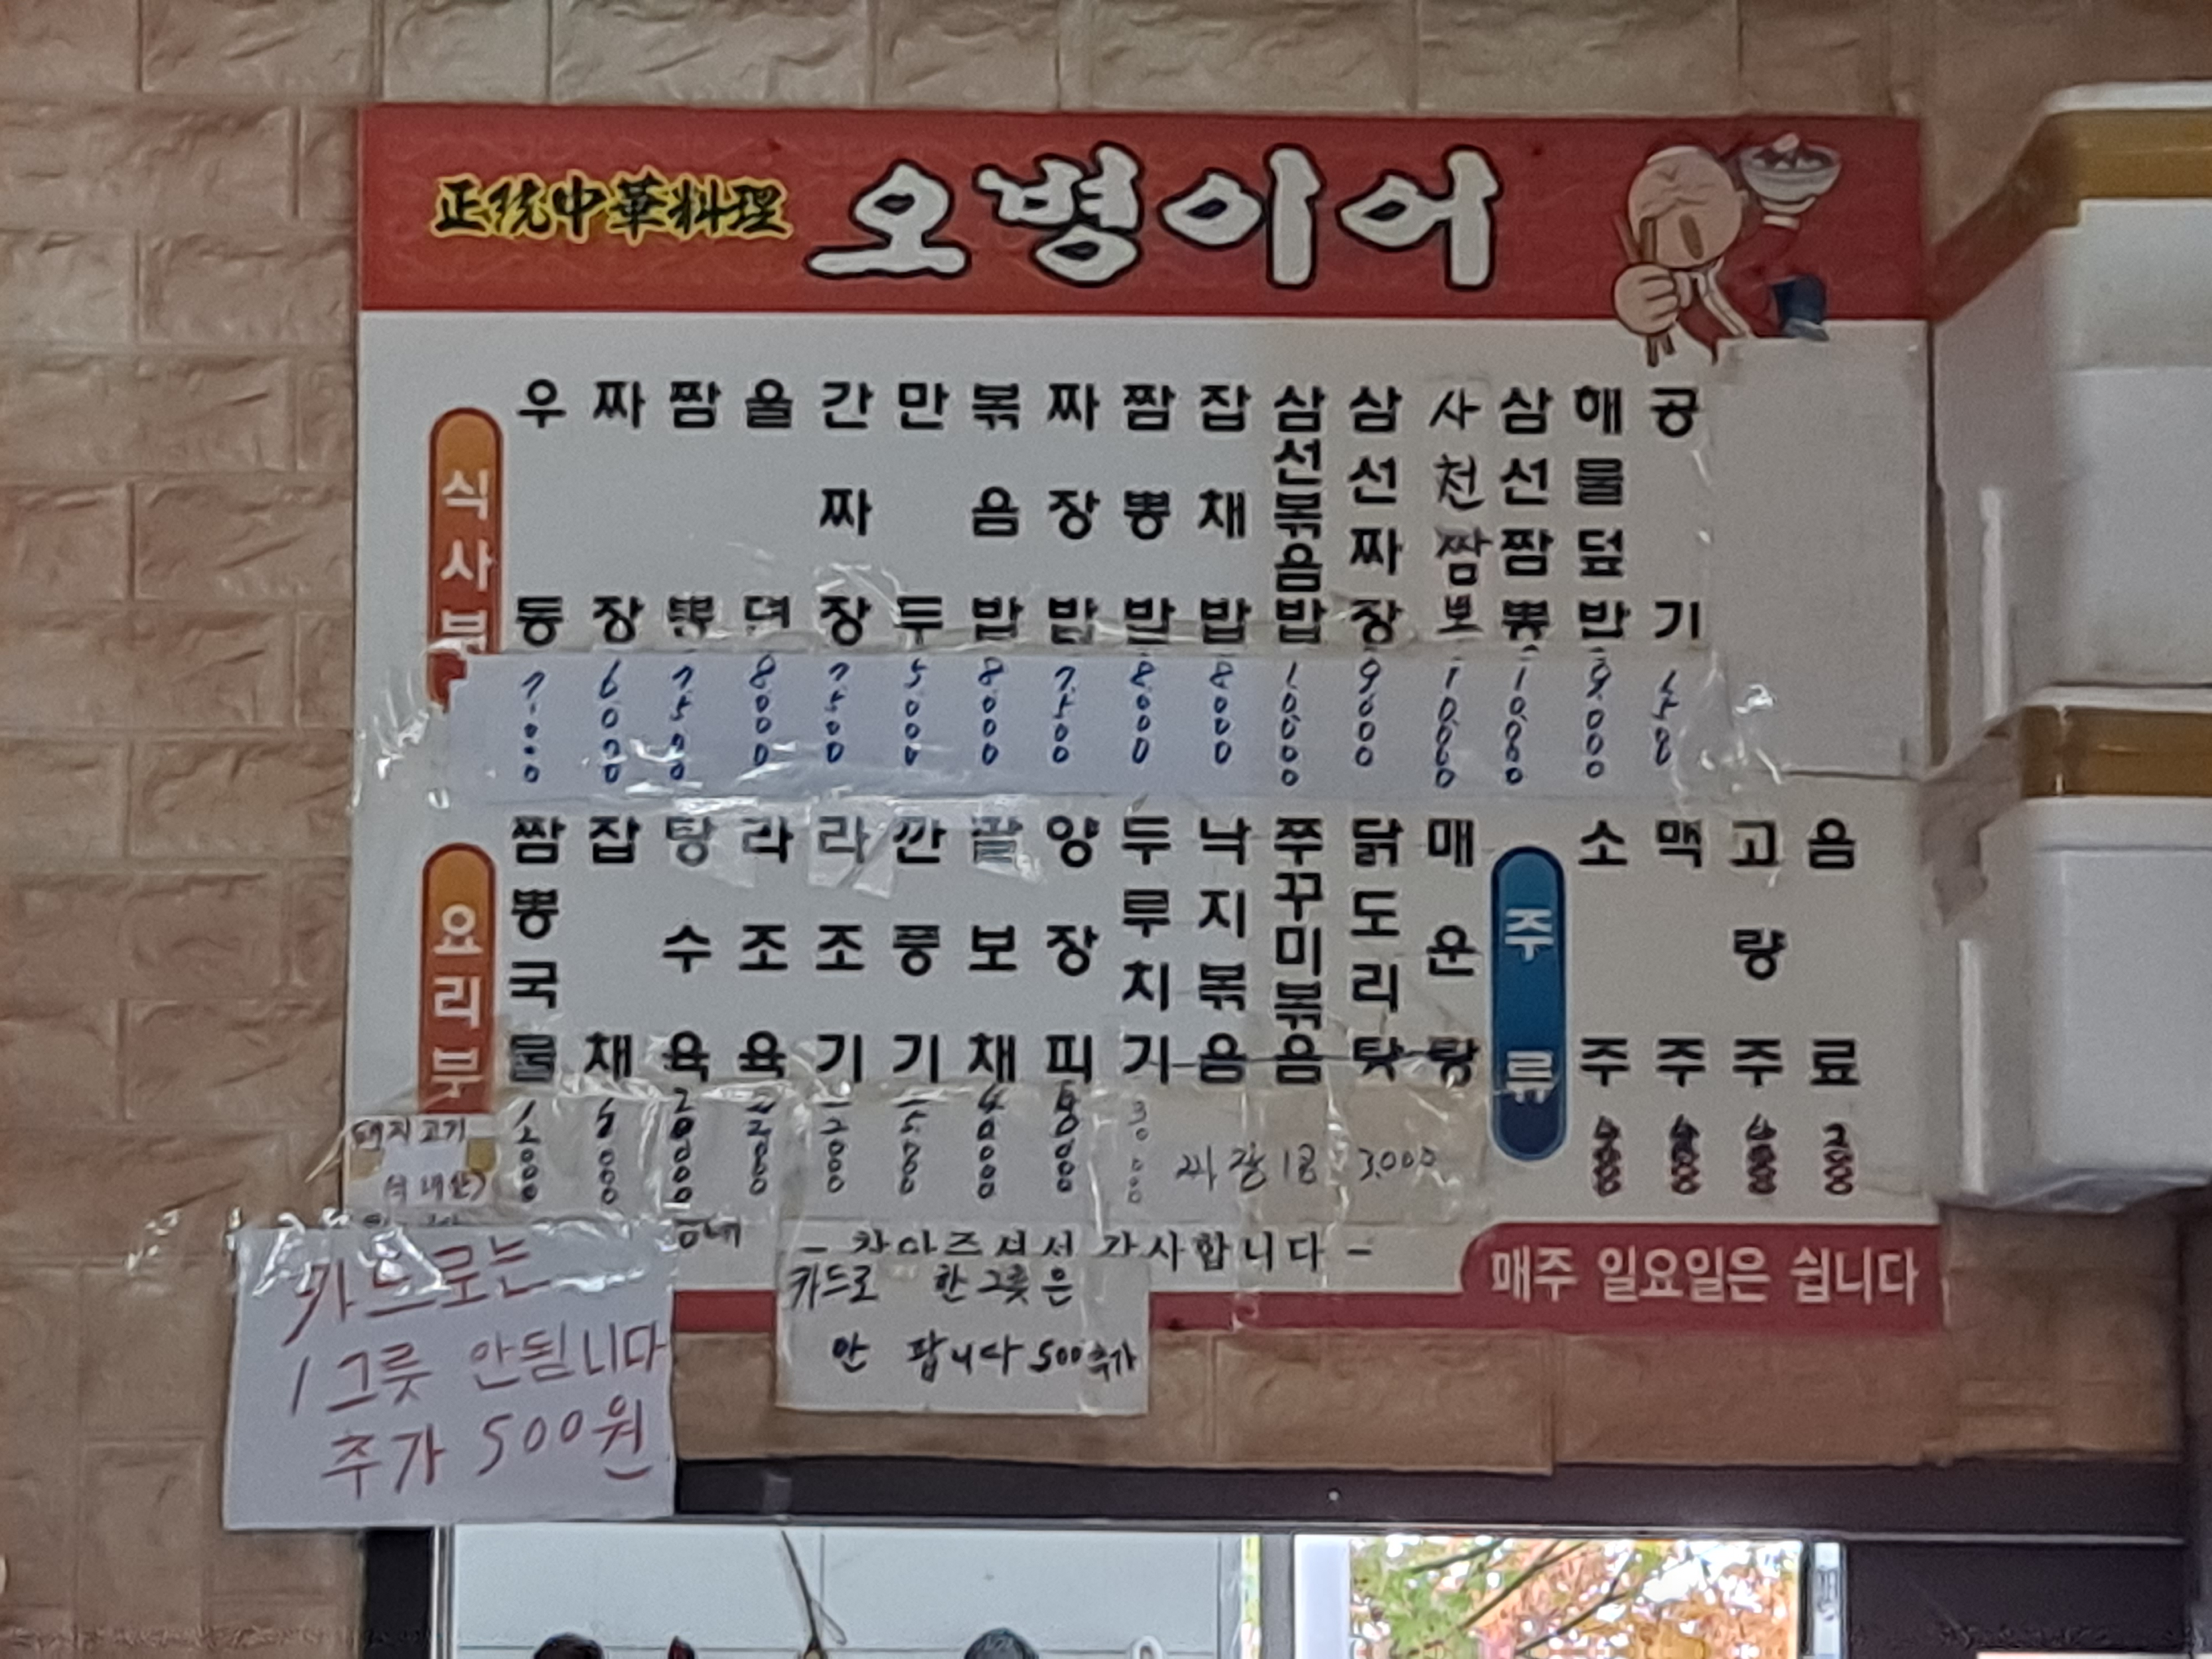 正統中華料理 오병이어
식사부
우동 7.000
짜장 6000
짬뽕 7500
울면 8000
간짜장 7500
만두 5.000
볶음밥 8.000
짜장밥 7.500
짬뽕밥 8.000
잡채밥 8000
삼선볶음밥 10.000
삼선짜장 9.000
사천짬뽕 10.000
삼선짬뽕 10.000
해물덮밥 9.000
공기
요리부
짬뽕국물
잡채
탕수육 20000
라조육
라조기
깐풍기
팔보채 40000
양장피
두루치기 30000
낙지볶음
쭈꾸미볶음
닭도리탕
매운탕
짜장 1곱 3,000
주류
소주
맥주
고량주
음료
돼지고기
- 찾아주셔서 감사합니다 -
매주 일요일은 쉽니다
카드로는
1그릇 안됩니다
추가 500원
카드로 한그릇은
안 팝니다 500추가